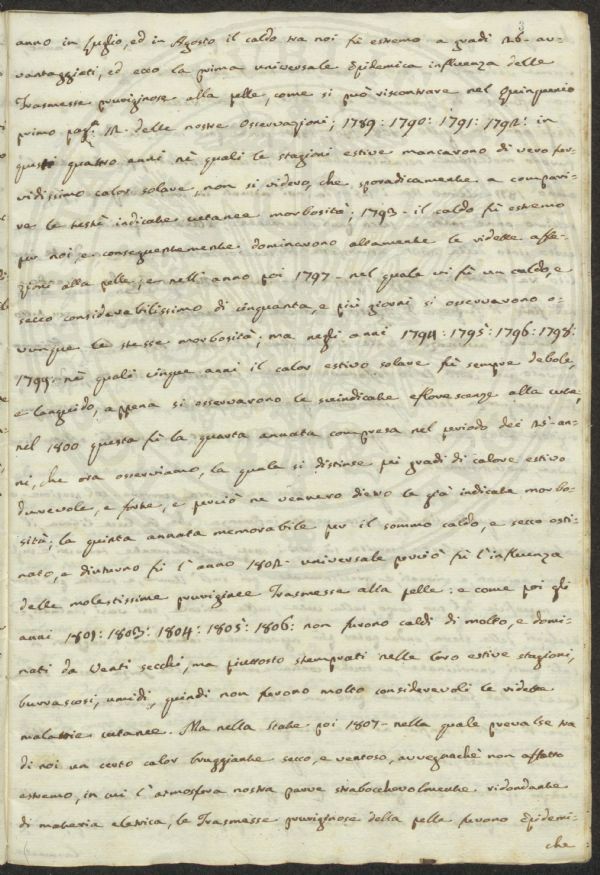 3
anno in Luglio, ed in Agosto il caldo tra noi fù estremo a gradi 26. av-
vantaggiati, ed ecco la prima universale Epidemica influenza delle
Trasmesse pruriginose alla pelle, come si può riscontrare nel Quinquenio
primo pag: 12. delle nostre Osservazioni; 1789: 1790: 1791: 1792: in
questi quattro anni nè quali le stagioni estive mancarono di vero fer-
vidissimo calor solare, non si videro, che sporadicamente a compari-
re le testè indicate cutanee morbosità; 1793- il caldo fù estremo
per noi, e conseguentemente dominarono altamente le vidette affe-
zioni alla pelle; e nell'anno poi 1797- nel quale vi fù un caldo, e
secco considerabilissimo di cinquanta, e più giorni si osservarono o-
vunque le stesse morbosità; ma negli anni 1794: 1795: 1796: 1798:
1799: nè quali cinque anni il calor estivo solare fù sempre debole,
e languido, appena si osservarono le suindicate eflorescenze alla cute,
nel 1800 questa fù la quarta annata compresa nel periodo dei 25-an-
ni, che ora osserviamo, la quale si distinse pei gradi di calore estivo
durevole, e forte, e perciò ne vennero dietro la già indicata morbo-
sità; la quinta annata memorabile per il sommo caldo, e secco osti-
nato, e diuturno fù l'anno 1802- universale perciò fù l'influenza
delle molestissime pruriginee Trasmesse alla pelle: e come poi gli
anni 1801: 1803: 1804: 1805: 1806: non furono caldi di molto, e domi-
nati da Venti secchi, ma piuttosto stemprati nelle loro estive stagioni,
burrascosi, umidi, quindi non furono molto considerevoli le vidette
malattie cutanee. Ma nella State poi 1807- nella quale prevalse tra
di noi un certo calor bruggiante secco, e ventoso, avvegnachè non affatto
estremo, in cui l'atmosfera nostra parve strabocchevolmente ridondante
di materia eletrica, le Trasmesse pruriginose della pelle furono Epidemi-
che